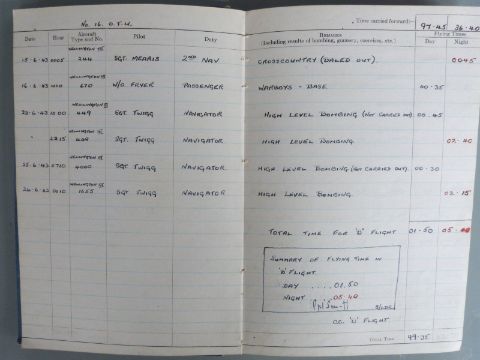 No. 16. O.T.U.
Time carried forward:— 97.45 36.40
Date Hour Aircraft Type and No. Pilot Duty
REMARKS (Including results of bombing, gunnery, exercises, etc.) Flying Times Day Night
15-6-43 0005 WELLINGTON III 244 SGT. MERRIS 2ND NAV. CROSSCOUNTRY (BALED OUT). 0045
16-6-43 WELLINGTON III 670 W/O. FRYER PASSENGER WARBOYS - BASE 00.35
WELLINGTON III 449 SGT TWIGG NAVIGATOR HIGH LEVEL BOMBING (NOT CARRIED OUT) 00.45
" SGT. TWIGG NAVIGATOR HIGH LEVEL BOMBING 02.40
25-6-43 SGT TWIGG NAVIGATOR HIGH LEVEL BOMBING (NOT CARRIED OUT) 00.30
26-6-43 1655 SGT TWIGG NAVIGATOR HIGH LEVEL BOMBING. 02.15
TOTAL TIME FOR 'D' FLIGHT 01.50 05.40
SUMMARY OF FLYING TIME IN
'D' FLIGHT
DAY ....01.50
NIGHT .05.40
S/LDR.
O.C. 'D' FLIGHT
Total Time 99.35